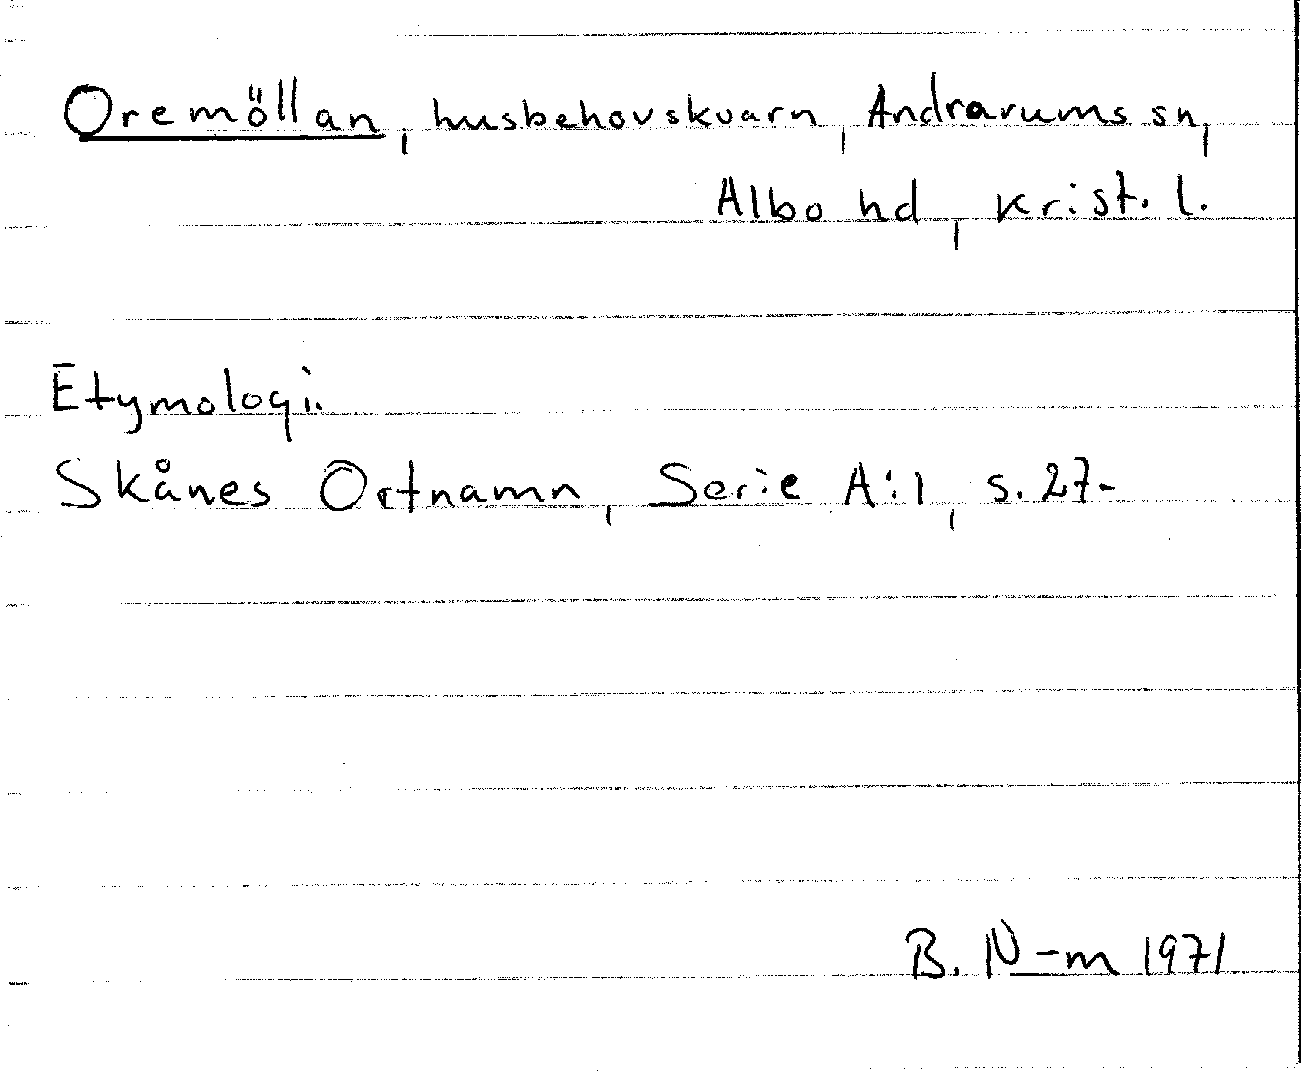 Oremöllan, husbehovskvarn, Andrarums sn,
Albo hd, Krist. l.
Etymologi.
Skånes Ortnamn, Serie A:1, s. 27.
B. N-m 1971